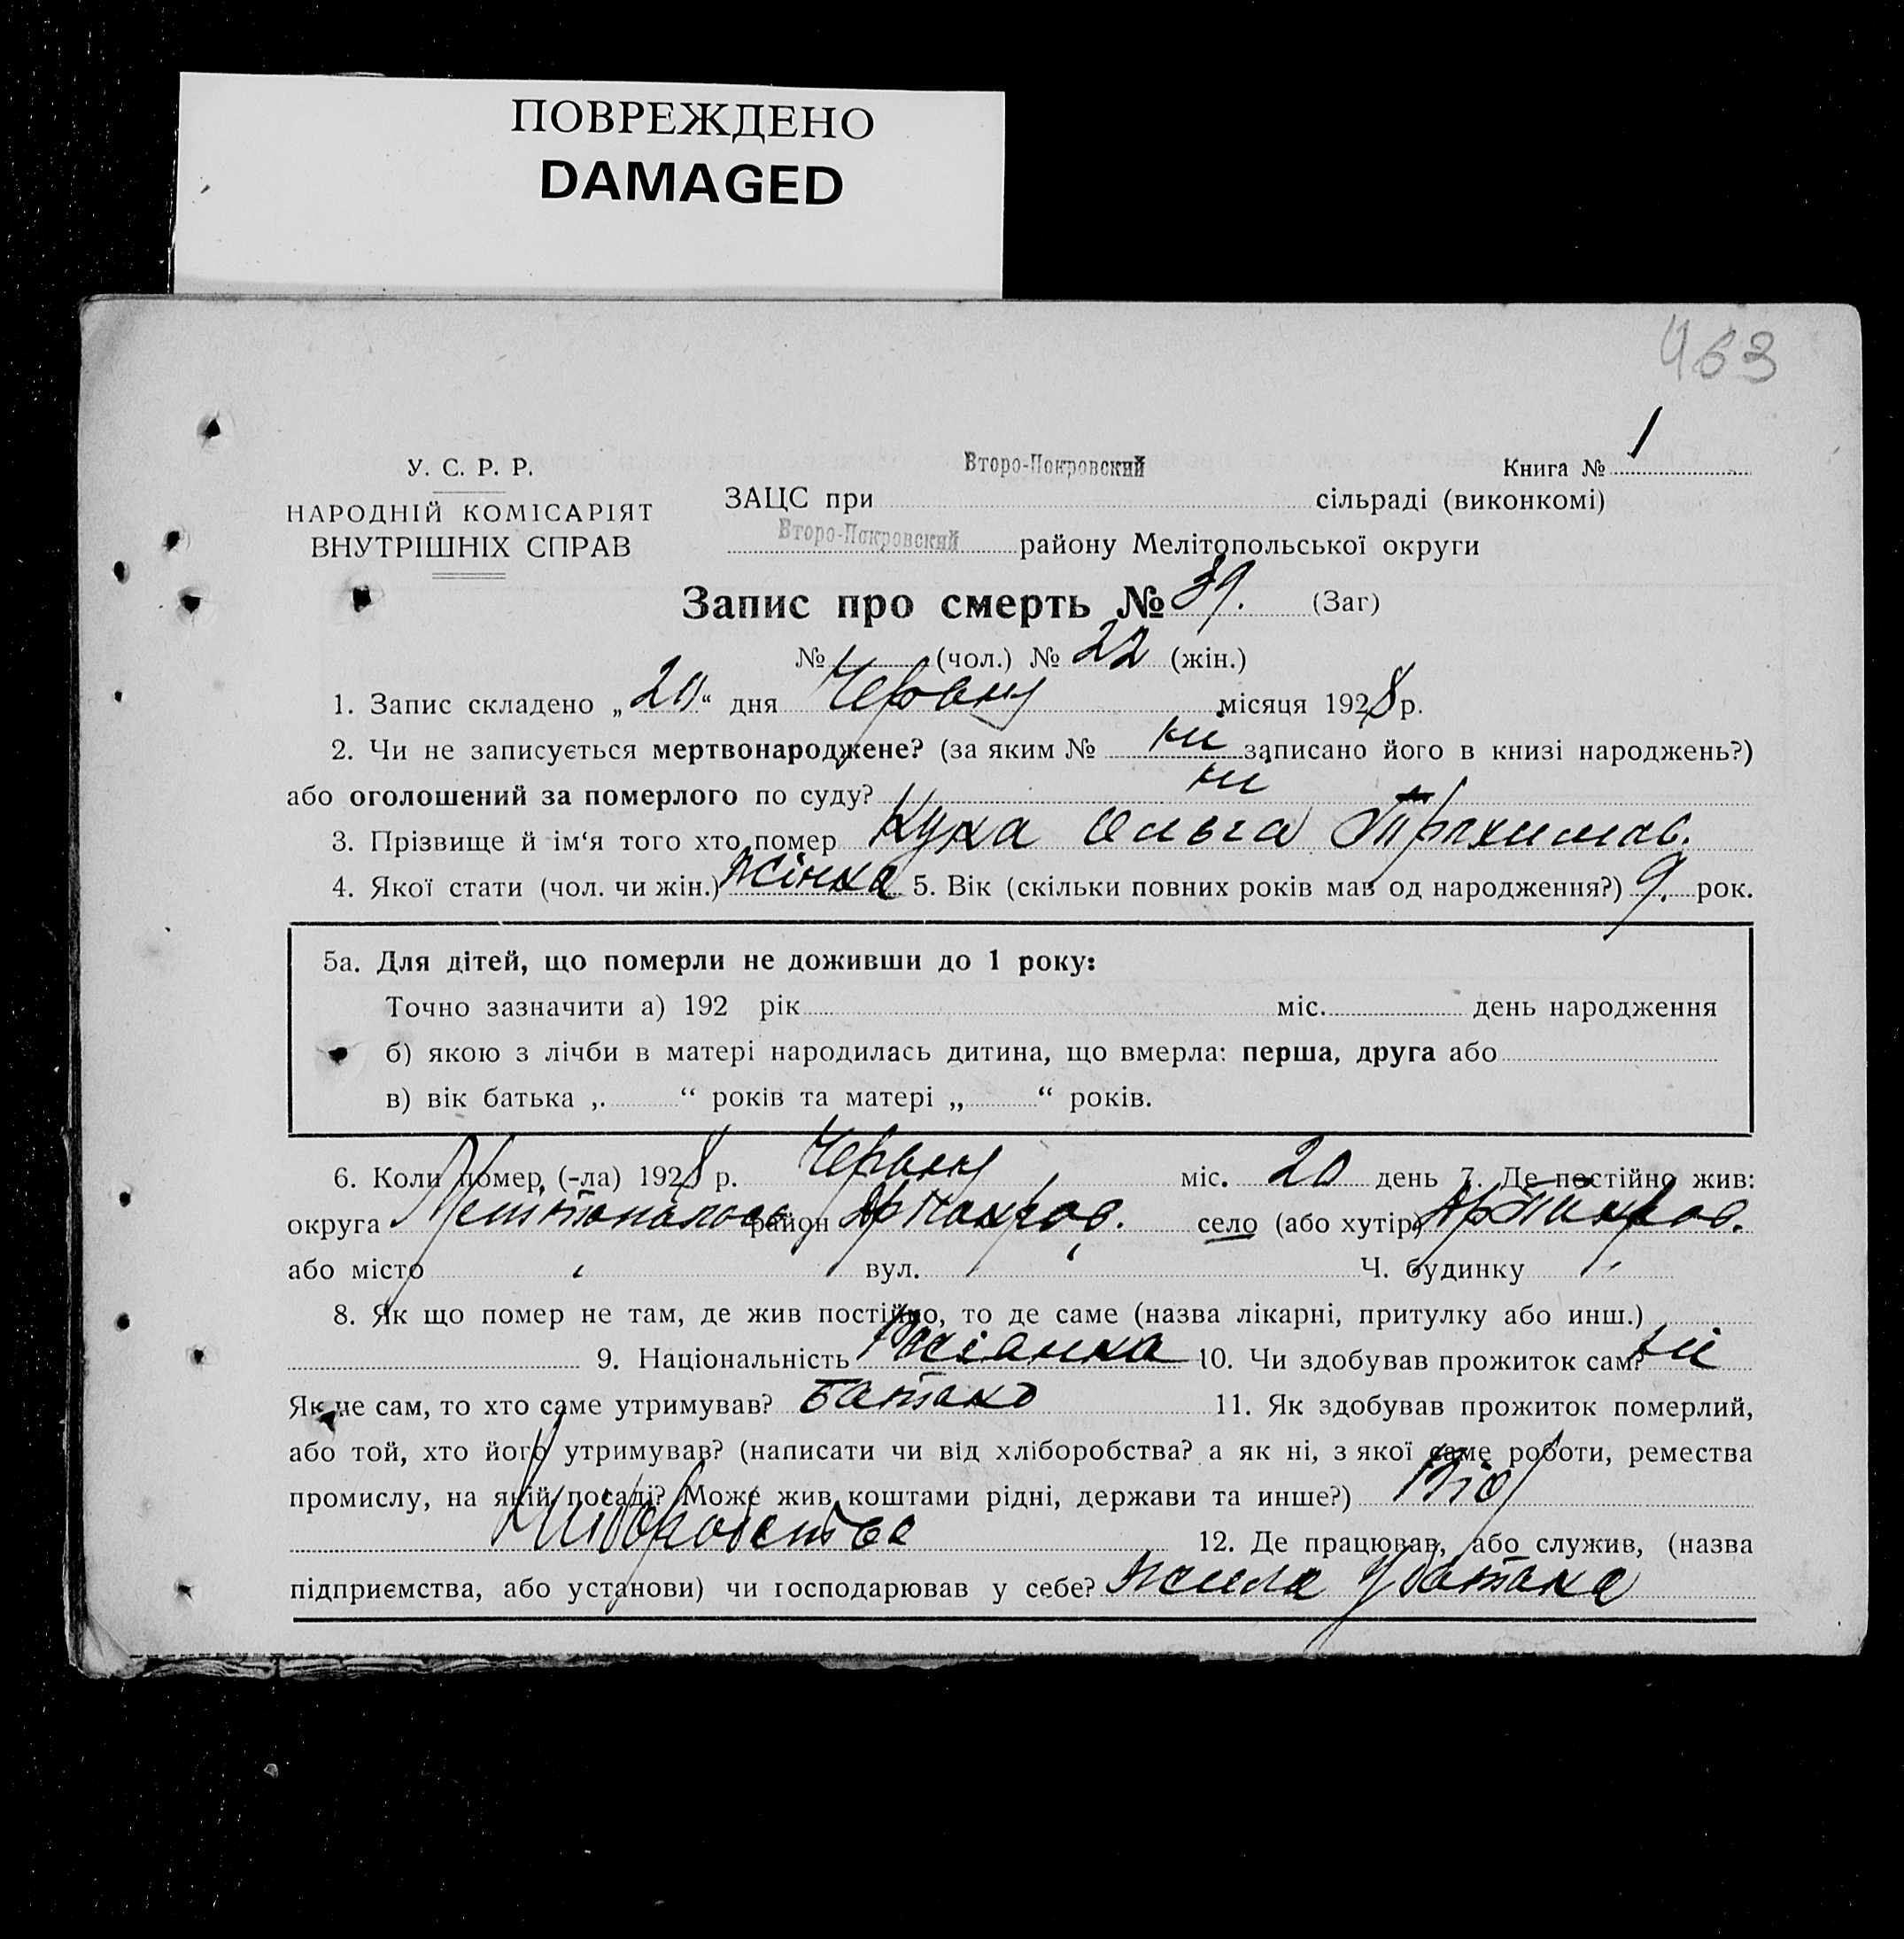 ПОВРЕЖДЕНО
DAMAGED
463
У. С. Р. Р.
НАРОДНІЙ КОМІСАРІЯТ
ВНУТРІШНІХ СПРАВ
Второ-Покровский
Книга № 1
ЗАЦС при сільраді (виконкомі)
Второ-Покровский району Мелітопольської округи
Запис про смерть № 39. (Заг)
№ (чол.) № 22 (жін.)
1. Запис складено „20“ дня Червня місяця 1928 р.
2. Чи не записується мертвонароджене? (за яким № ні записано його в книзі народжень?)
або оголошений за померлого по суду? ні
3. Прізвище й ім‘я того хто помер Куха Ольга Трахимов.
4. Якої стати (чол. чи жін.) Жінка 5. Вік (скільки повних років мав од народження?) 9. рок.
5а. Для дітей, що померли не доживши до 1 року:
Точно зазначити а) 192 рік міс. день народження
б) якою з лічби в матері народилась дитина, що вмерла: перша, друга або
в) вік батька „. “ років та матері „ “ років.
6. Коли помер, (-ла) 1928 р. Червня міс. 20 день 7. Де постійно жив:
округа район Покров. село (або хутір)
або місто вул. Ч. будинку
8. Як що помер не там, де жив постійно, то де саме (назва лікарні, притулку або инш.)
9. Національність Росіанка 10. Чи здобував прожиток сам? ні
Як не сам, то хто саме утримував? Батько 11. Як здобував прожиток померлий,
або той, хто його утримував? (написати чи від хліборобства? а як ні, з якої саме роботи, ремества
промислу, на якій посаді? Може жив коштами рідні, держави та инше?) Від
Хліборобства 12. Де працював, або служив, (назва
підприємства, або установи) чи господарював у себе? жила у батька